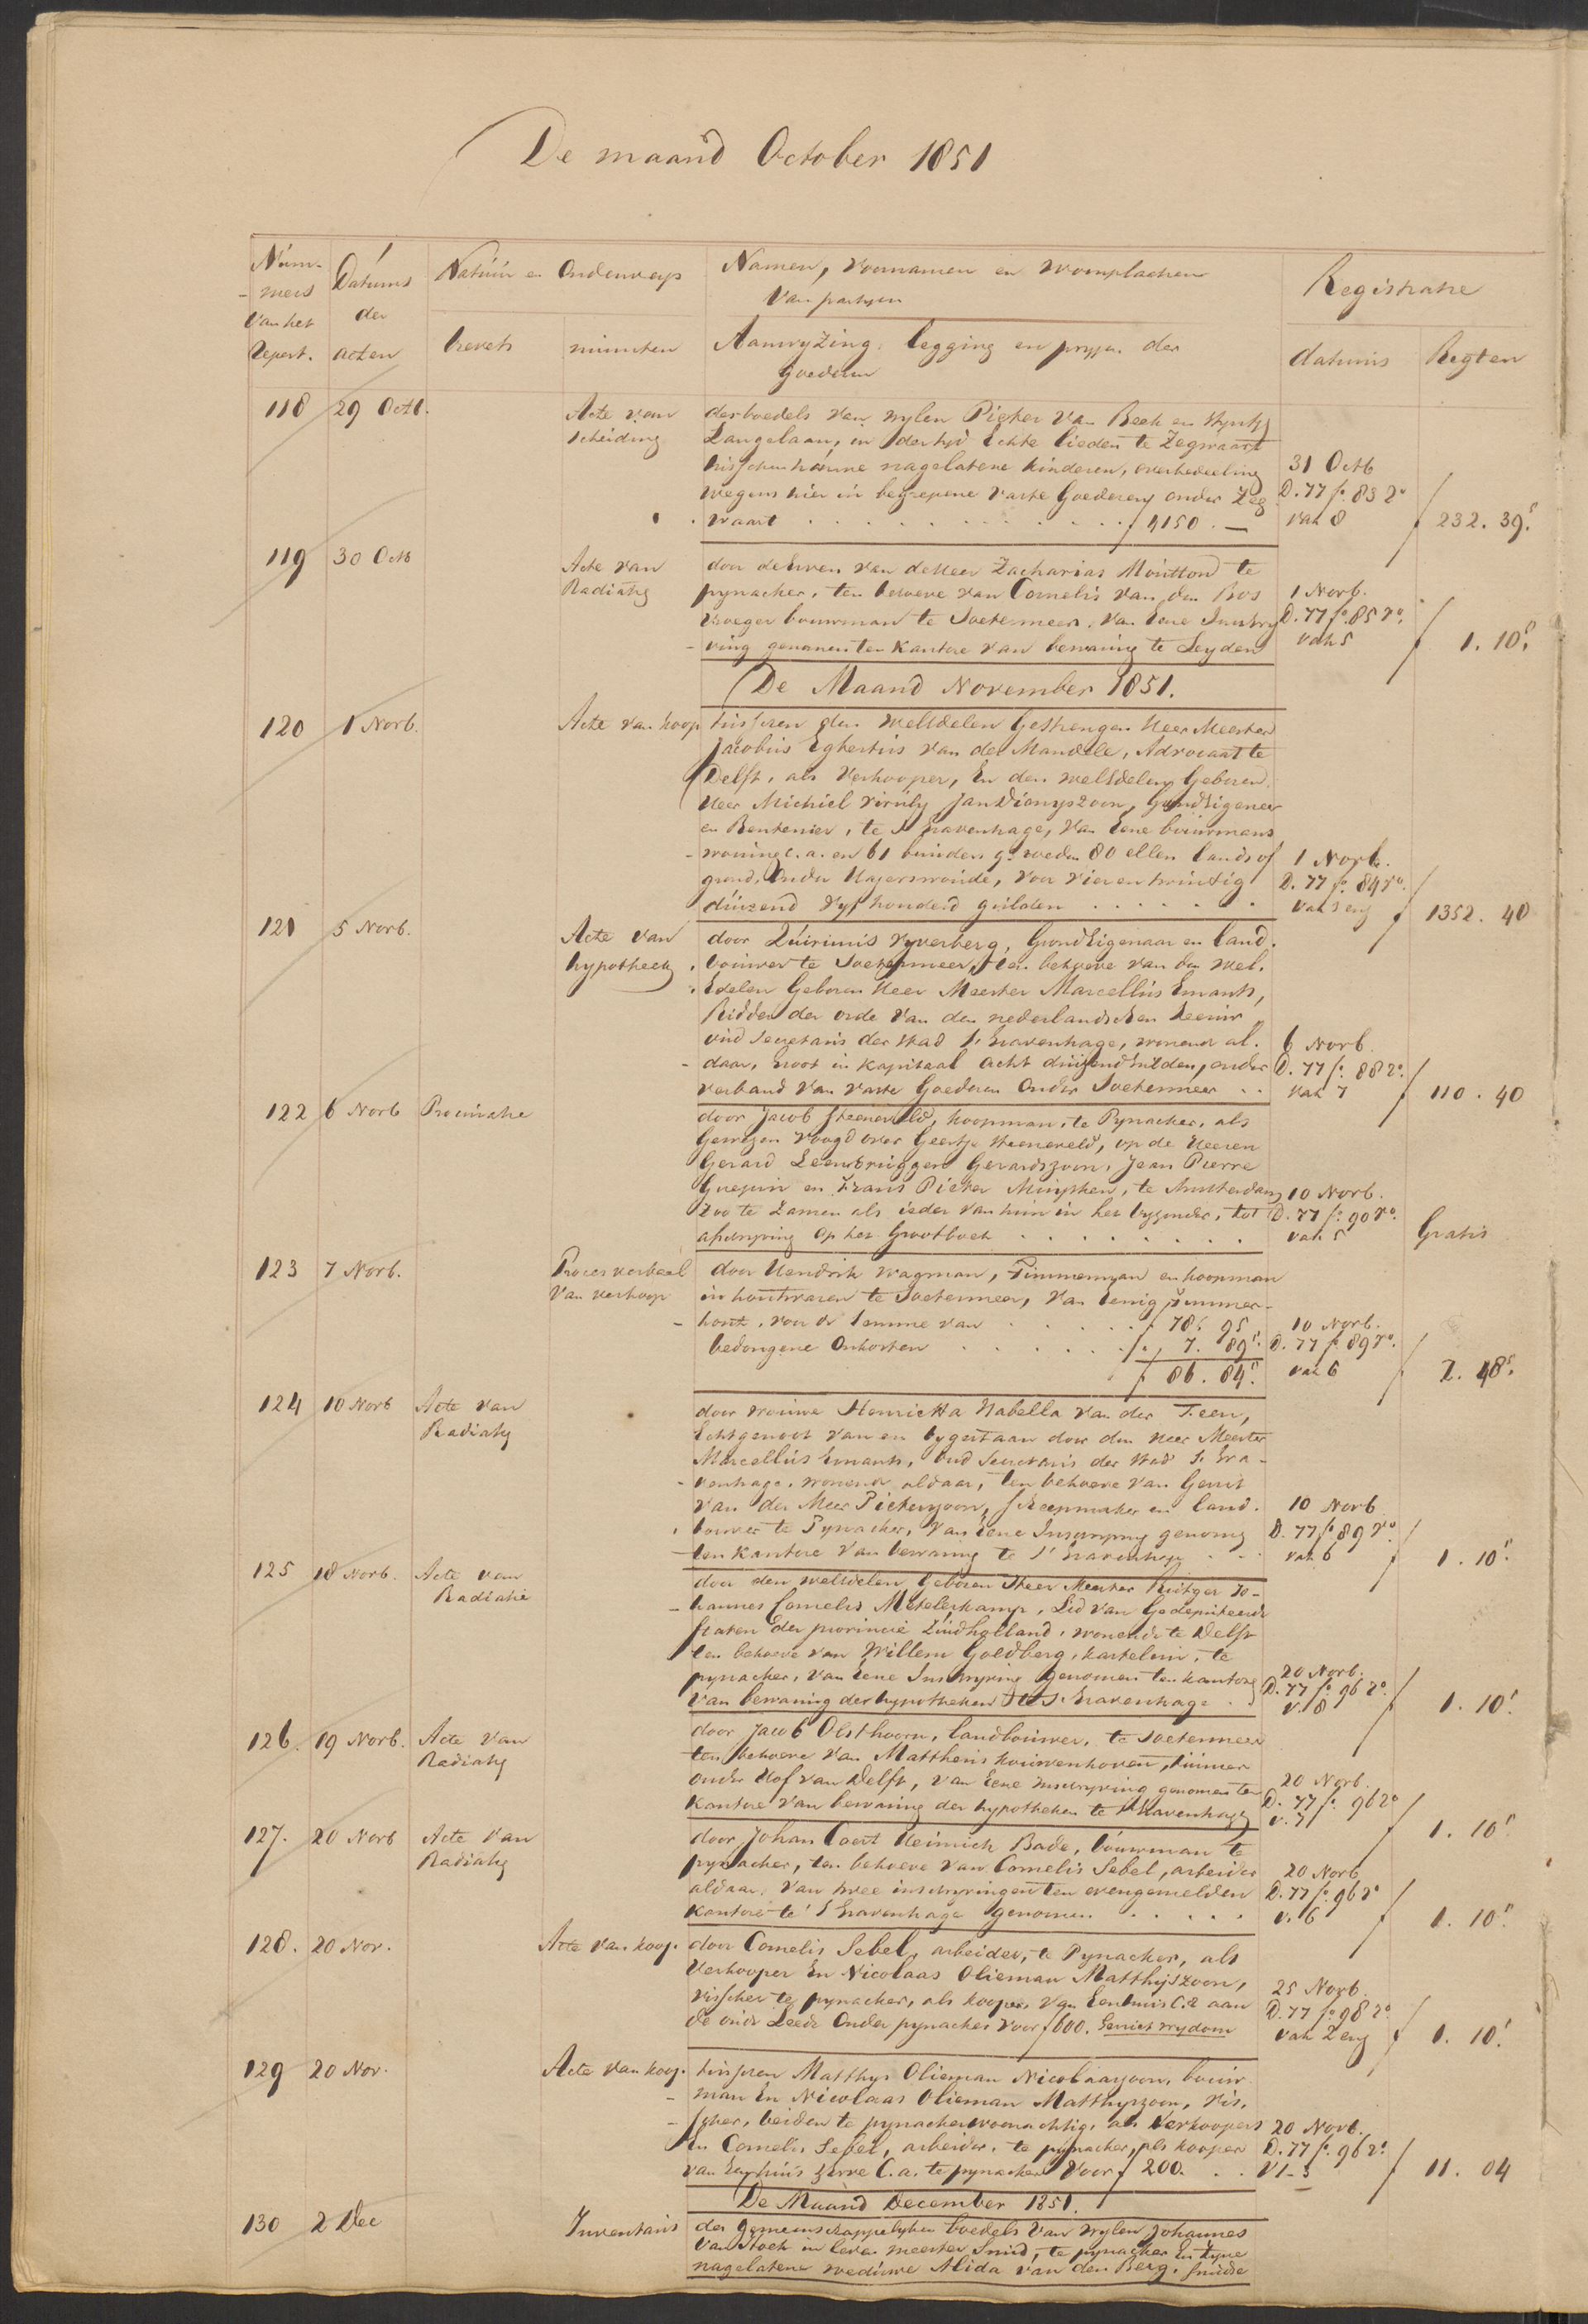 De maand October 1851
Num-
-mers
van het
Repert.
Datums
der
acten
Natuur en Onderwerp
brevets
minuten
Namen, voornamen en woonplaatsen
van partyen
Aanwyzing, legging en pryzen der
goederen
Registratie
datums
Regten
118 29 Octb. Acte van
scheiding
des boedels van wylen Pieter van Beek en
Langelaan, in der tyd Echte lieden te Zegwaart
tusschen hunne nagelatene kinderen, overbedeeling
wegens hier in begrepene vaste Goederen onder Zeg
waart . . . . . f 4150. —
31 Octb
D. 77 fo. 83 ro
vak 8
f 232. 39 5
119 30 Octb Acte van
Radiatie
door de Erven van de Heer Zacharias Moutton te
pynacker, ten behoeve van Cornelis van den Bos
vroeger bouwman te Soetermeer, van Eene Inschry
-ving genomen ten kantore van bewaring te Leyden
1 Novb.
D. 77 fo. 85 ro.
vak 5
f 1. 10 5
De Maand November 1851.
120 1 Novb. Acte van koop
tusschen den WelEdelen Gestrengen Heer Meester
Jacobus Egbertus van der Mandele, Advocaat te
Delft, als Verkooper, En den WelEdelen Geboren
Heer Michiel Viruly Jan Dionyszoon, GrondEigenaar
en Rentenier, te S Gravenhage, van Eene bouwmans
-woning c. a. en 61 bunders 90 roeden 80 ellen lands of
grond, Onder Hazerswoude, voor vier en twintig
duizend vyf honderd gulden . . . . .
1 Novb.
D. 77 fo. 84 ro.
vak 3 env
f 1352. 40
121 5 Novb. Acte van
hypotheek
door Quirinus Vyverberg, GrondEigenaar en land.
bouwer te Soetermeer, ten behoeve van den Wel.
Edelen Geboren Heer Meester Marcellus Emants,
Ridder der orde van den nederlandschen Leeuw
oud Secretaris der stad S Gravenhage, wonend al.
-daar, groot in kapitaal acht duizend Gulden, onder
verband van vaste Goederen Onder Soetermeer . .
6 Novb.
D. 77 fo. 88 ro.
vak 7
f 110. 40
122 6 Novb Procuratie
door Jacob Steeneveld, koopman, te Pynacker, als
Gewezen Voogd over Geertje Steeneveld, op de Heeren
Gerard Leembruggen Gerardszoon, Jean Pierre
Guepin en Frans Pieter, te Amsterdam
zoo te zamen als ieder van hun in het byzonder, tot
afschryving op het Grootboek . . . . . . . .
10 Novb.
D. 77 fo. 90 ro.
vak 5
Gratis
123 7 Novb. Proces verbaal
van verkoop
door Hendrik Wagman, Timmerman en koopman
in houtwaren te Soetermeer, van Eenig timmer-
- hout, voor de Somme van . . . . . f 78. 95
bedongene Onkosten . . . . . f. 7. 89 5
f 86. 84 5
10 Novb.
D. 77 fo 89 ro.
vak 6
f 2. 48 5
124 10 Novb Acte van
Radiatie
door vrouwe Henrietta Isabella van der Feen,
Echtgenoot van en bygestaan door den Heer Meester
Marcellus Emants, Oud Secretaris der Stad S Gra-
-venhage, wonend aldaar, ten behoeve van Gerrit
van der Meer Pieterszoon, Scheepmaker en land.
bouwer te Pynacker, van Eene Inschryving genomen
ten kantore van bewaring te S Gravenhage . . .
10 Novb
D. 77 fo 89 ro
vak 6
f 1. 10 5
125 18 Novb. Acte van
Radiatie
door den WelEdelen Geboren Heer Meester Rutger Jo-
-hannes Cornelis Metelerkamp, Lid van Gedeputeerde
staten der provincie Zuidholland, wonende te Delft
ten behoeve van Willem Goldberg, kastelein, te
pynacker, van Eene Inschryving genomen ten kantore
van bewaring der hypotheken te S Gravenhage .
20 Novb.
D. 77 fo 96 ro.
v. 8
f 1. 10 5
126. 19 Novb. Acte van
Radiatie
door Jacob Olsthoorn, landbouwer, te Soetermeer
ten behoeve van Mattheus Kouwenhoven, tuinier
onder Hof van Delft, van Eene Inschryving genomen ten
kantore van bewaring der hypotheken te S Gravenhage
20 Novb.
D. 77 fo. 96 ro
v. 7
f 1. 10 5
127. 20 Novb Acte van
Radiatie
door Johan Coert Heinrich Bade, bouwman te
pynacker, ten behoeve van Cornelis Sebel, arbeider
aldaar, van twee inschryvingen ten evengemelden
kantore te S Gravenhage genomen . . . . .
20 Novb
D. 77 fo. 96 ro
v. 6
f 1. 10 5
128. 20 Nov. Acte van koop.
door Cornelis Sebel, arbeider, te Pynacker, als
Verkooper En Nicolaas Olieman Matthijszoon,
visscher te pynacker, als kooper van Een huis c.a. aan
de oude Leede Onder pynacker voor f 600. Geniet vrydom
25 Novb.
D. 77 fo 98 ro.
vak 2 env
f 1. 10 5
129 20 Nov. Acte van koop.
tusschen Matthys Olieman Nicolaaszoon, bouw
-man En Nicolaas Olieman Matthyszoon, vis.
-scher, beiden te pynacker woonachtig, als Verkoopers
En Cornelis Sebel, arbeider, te pynacker, als kooper
van Een huis Erve C. a. te pynacker voor f 200. . .
20 Novb.
D. 77 fo. 96 ro.
V 1-3
f 11. 04
De Maand December 1851.
130 2 Dec Inventaris
des gemeenschappelyken boedels van wylen Johannes
van Stock in leven meester Smid, te pynacker En zyne
nagelatene weduwe Alida van den Berg, smidse